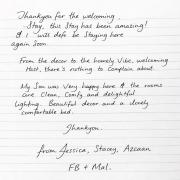 Thankyou for the welcoming
Stay, this Stay has been amazing!
& i will defo be Staying here
again Soon.
From the decor to the homely Vibe, welcoming
Host, there's nothing to Complain about.
My Son was Very happy here & the rooms
are Clean, Comfy and delightful
lighting. Beautiful decor and a lovely
comfortable bed.
Thankyou.
from Jessica, Stacey, Azcaan
FB + Mal.